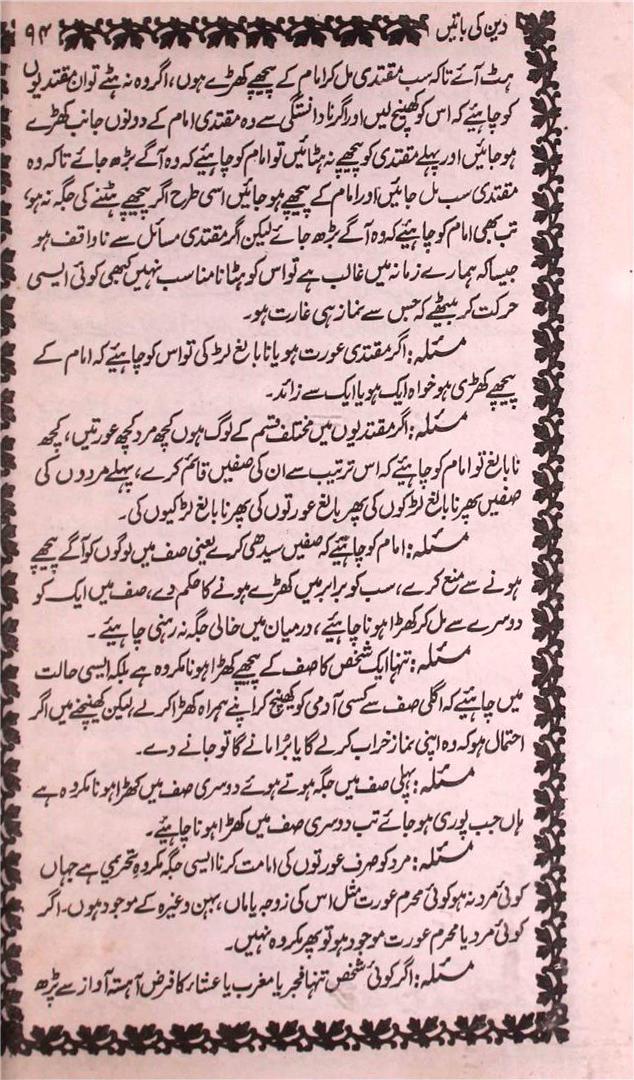 دین کی باتیں ۹۴
ہٹ آئے تاکہ سب مقتدی مل کر امام کے پیچھے کھڑے ہوں، اگر وہ نہ ہٹے تو ان مقتدیوں
کو چاہیئے کہ اس کو کھینچ لیں اور اگر نادانستگی سے وہ مقتدی امام کے دونوں جانب کھڑے
ہو جائیں اور پہلے مقتدی کو پیچھے نہ ہٹائیں تو امام کو چاہیئے کہ وہ آگے بڑھ جائے تاکہ وہ
مقتدی سب مل جائیں اور امام کے پیچھے ہو جائیں اسی طرح اگر پیچھے ہٹنے کی جگہ نہ ہو،
تب بھی امام کو چاہیئے کہ وہ آگے بڑھ جائے لیکن اگر مقتدی مسائل سے ناواقف ہو
جیسا کہ ہمارے زمانہ میں غالب ہے تو اس کو ہٹانا مناسب نہیں کبھی کوئی ایسی
حرکت کر بیٹھے کہ جس سے نماز ہی غارت ہو۔
مسئلہ: اگر مقتدی عورت ہو یا نابالغ لڑکی تو اس کو چاہیئے کہ امام کے
پیچھے کھڑی ہو خواہ ایک ہو یا ایک سے زائد۔
مسئلہ: اگر مقتدیوں میں مختلف قسم کے لوگ ہوں کچھ مرد کچھ عورتیں، کچھ
نابالغ تو امام کو چاہیئے کہ اس ترتیب سے ان کی صفیں قائم کرے، پہلے مردوں کی
صفیں پھر نابالغ لڑکوں کی پھر بالغ عورتوں کی پھر نابالغ لڑکیوں کی۔
مسئلہ: امام کو چاہیئے کہ صفیں سیدھی کرے یعنی صف میں لوگوں کو آگے پیچھے
ہونے سے منع کرے، سب کو برابر میں کھڑے ہونے کا حکم دے، صف میں ایک کو
دوسرے سے مل کر کھڑا ہونا چاہیئے، درمیان میں خالی جگہ نہ رہنی چاہیئے۔
مسئلہ: تنہا ایک شخص کا صف کے پیچھے کھڑا ہونا مکروہ ہے بلکہ ایسی حالت
میں چاہیئے کہ اگلی صف سے کسی آدمی کو کھینچ کر اپنے ہمراہ کھڑا کر لے لیکن کھینچنے میں اگر
احتمال ہو کہ وہ اپنی نماز خراب کر لے گا یا بُرا مانے گا تو جانے دے۔
مسئلہ: پہلی صف میں جگہ ہوتے ہوئے دوسری صف میں کھڑا ہونا مکروہ ہے
ہاں جب پوری ہو جائے تب دوسری صف میں کھڑا ہونا چاہیئے۔
مسئلہ: مرد کو صرف عورتوں کی امامت کرنا ایسی جگہ مکروہِ تحریمی ہے جہاں
کوئی مرد نہ ہو کوئی محرم عورت مثل اس کی زوجہ یا ماں، بہن وغیرہ کے موجود ہوں۔ اگر
کوئی مرد یا محرم عورت موجود ہو تو پھر مکروہ نہیں۔
مسئلہ: اگر کوئی شخص تنہا فجر یا مغرب یا عشاء کا فرض آہستہ آواز سے پڑھ